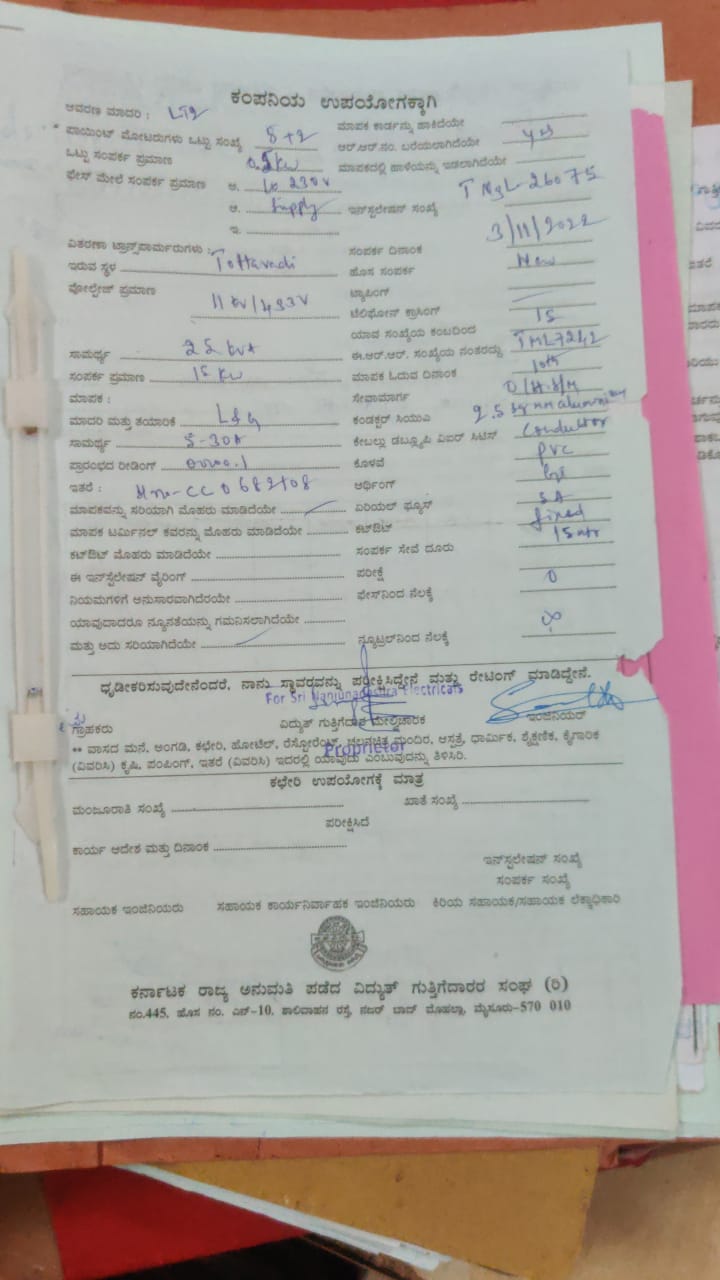 ಕಂಪನಿಯ ಉಪಯೋಗಕ್ಕಾಗಿ
ಆವರಣ ಮಾದರಿ : LT2 ಮಾಪಕ ಕಾರ್ಡನ್ನು ಹಾಕಿದೆಯೇ
ಪಾಯಿಂಟ್ ಮೋಟರುಗಳು ಒಟ್ಟು ಸಂಖ್ಯೆ 8+2 ಆರ್.ಆರ್.ನಂ. ಬರೆಯಲಾಗಿದೆಯೇ yes
ಒಟ್ಟು ಸಂಪರ್ಕ ಪ್ರಮಾಣ kw ಮಾಪಕದಲ್ಲಿ ಹಾಳೆಯನ್ನು ಇಡಲಾಗಿದೆಯೇ
ಫೇಸ್ ಮೇಲೆ ಸಂಪರ್ಕ ಪ್ರಮಾಣ ಅ. 230V
ಆ. Supply ಇನ್‌ಸ್ಟಲೇಷನ್ ಸಂಖ್ಯೆ TNGL-26075
ಇ.
ವಿತರಣಾ ಟ್ರಾನ್ಸ್‌ಫಾರ್ಮರುಗಳು : ಸಂಪರ್ಕ ದಿನಾಂಕ 3/11/2022
ಇರುವ ಸ್ಥಳ Tottavadi ಹೊಸ ಸಂಪರ್ಕ New
ವೋಲ್ಟೇಜ್ ಪ್ರಮಾಣ 11 KV/433V ಟ್ಯಾಪಿಂಗ್
ಟೆಲಿಫೋನ್ ಕ್ರಾಸಿಂಗ್
ಯಾವ ಸಂಖ್ಯೆಯ ಕಂಬದಿಂದ 15
ಸಾಮರ್ಥ್ಯ 25 KVA ಈ.ಆರ್.ಆರ್. ಸಂಖ್ಯೆಯ ನಂತರದ್ದು
ಸಂಪರ್ಕ ಪ್ರಮಾಣ 15 KW ಮಾಪಕ ಓದುವ ದಿನಾಂಕ 10th
ಮಾಪಕ : ಸೇವಾಮಾರ್ಗ
ಮಾದರಿ ಮತ್ತು ತಯಾರಿಕೆ L&G ಕಂಡಕ್ಟರ್ ಸಿಯುಎ 2.5 sq mm aluminium
ಸಾಮರ್ಥ್ಯ 5-30A ಕೇಬಲ್ಲು ಡಬ್ಲ್ಯೂಪಿ ವಿಐರ್ ಸಿಟಿಸ್ Conductor
ಪ್ರಾರಂಭದ ರೀಡಿಂಗ್ 0000.1 ಕೊಳವೆ PVC
ಇತರೆ : ಅರ್ಥಿಂಗ್
ಮಾಪಕವನ್ನು ಸರಿಯಾಗಿ ಮೊಹರು ಮಾಡಿದೆಯೇ ಏರಿಯಲ್ ಫ್ಯೂಸ್ 5A
ಮಾಪಕ ಟರ್ಮಿನಲ್ ಕವರನ್ನು ಮೊಹರು ಮಾಡಿದೆಯೇ ಕಟ್‌ಔಟ್ fixed
ಕಟ್‌ಔಟ್ ಮೊಹರು ಮಾಡಿದೆಯೇ ಸಂಪರ್ಕ ಸೇವೆ ದೂರು 15 mtr
ಈ ಇನ್‌ಸ್ಟಲೇಷನ್ ವೈರಿಂಗ್ ಪರೀಕ್ಷೆ
ನಿಯಮಗಳಿಗೆ ಅನುಸಾರವಾಗಿದೆರಯೇ ಫೇಸ್‌ನಿಂದ ನೆಲಕ್ಕೆ 0
ಯಾವುದಾದರೂ ನ್ಯೂನತೆಯನ್ನು ಗಮನಿಸಲಾಗಿದೆಯೇ
ಮತ್ತು ಅದು ಸರಿಯಾಗಿದೆಯೇ ನ್ಯೂಟ್ರಲ್‌ನಿಂದ ನೆಲಕ್ಕೆ
ಧೃಡೀಕರಿಸುವುದೇನೆಂದರೆ, ನಾನು ಸ್ಥಾವರವನ್ನು ಪರೀಕ್ಷಿಸಿದ್ದೇನೆ ಮತ್ತು ರೇಟಿಂಗ್ ಮಾಡಿದ್ದೇನೆ.
For Sri Nanjundeshwara Electricals
ಗ್ರಾಹಕರು ವಿದ್ಯುತ್ ಗುತ್ತಿಗೆದಾರ ಮೇಲ್ವಿಚಾರಕ ಇಂಜಿನಿಯರ್
Proprietor
** ವಾಸದ ಮನೆ, ಅಂಗಡಿ, ಕಛೇರಿ, ಹೋಟೆಲ್, ರೆಸ್ಟೋರೆಂಟ್, ಚಲನಚಿತ್ರ ಮಂದಿರ, ಆಸ್ಪತ್ರೆ, ಧಾರ್ಮಿಕ, ಶೈಕ್ಷಣಿಕ, ಕೈಗಾರಿಕ
(ವಿವರಿಸಿ) ಕೃಷಿ, ಪಂಪಿಂಗ್, ಇತರೆ (ವಿವರಿಸಿ) ಇದರಲ್ಲಿ ಯಾವುದು ಎಂಬುವುದನ್ನು ತಿಳಿಸಿರಿ.
ಕಛೇರಿ ಉಪಯೋಗಕ್ಕೆ ಮಾತ್ರ
ಮಂಜೂರಾತಿ ಸಂಖ್ಯೆ ಖಾತೆ ಸಂಖ್ಯೆ
ಪರೀಕ್ಷಿಸಿದೆ
ಕಾರ್ಯ ಆದೇಶ ಮತ್ತು ದಿನಾಂಕ
ಇನ್‌ಸ್ಟಲೇಷನ್ ಸಂಖ್ಯೆ
ಸಂಪರ್ಕ ಸಂಖ್ಯೆ
ಸಹಾಯಕ ಇಂಜಿನಿಯರು ಸಹಾಯಕ ಕಾರ್ಯನಿರ್ವಾಹಕ ಇಂಜಿನಿಯರು ಕಿರಿಯ ಸಹಾಯಕ/ಸಹಾಯಕ ಲೆಕ್ಕಾಧಿಕಾರಿ
ಕರ್ನಾಟಕ ರಾಜ್ಯ ಅನುಮತಿ ಪಡೆದ ವಿದ್ಯುತ್ ಗುತ್ತಿಗೆದಾರರ ಸಂಘ (ರಿ)
ನಂ.445, ಹೊಸ ನಂ. ಎನ್-10, ಶಾಲಿವಾಹನ ರಸ್ತೆ, ನಜರ್ ಬಾದ್ ಮೊಹಲ್ಲಾ, ಮೈಸೂರು-570 010